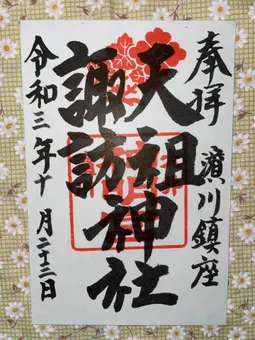 奉拝 濱川鎮座
天祖神社
諏訪
令和三年十月二十三日